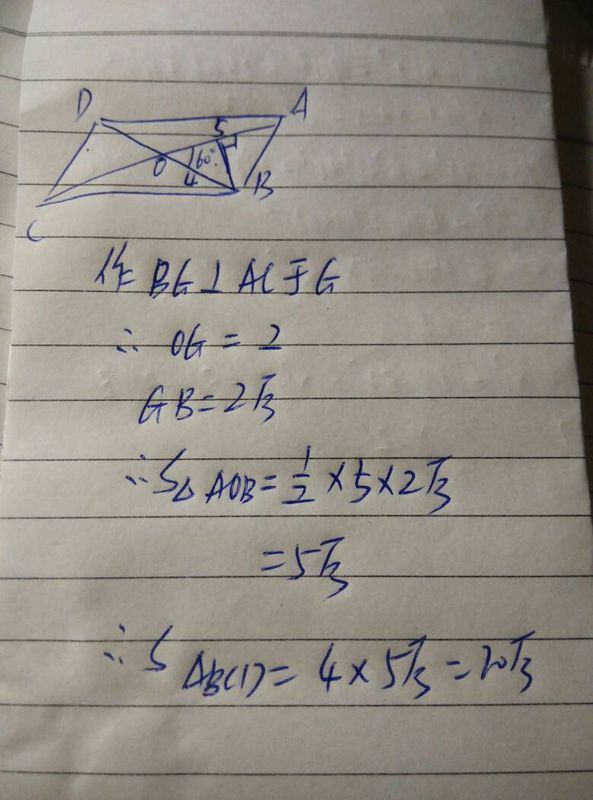 D A
5
O 60°
4 B
C
作 BG⊥AC于G
∴ OG = 2
GB=2√3
∴S△AOB=1/2×5×2√3
=5√3
∴S ABCD= 4×5√3=20√3